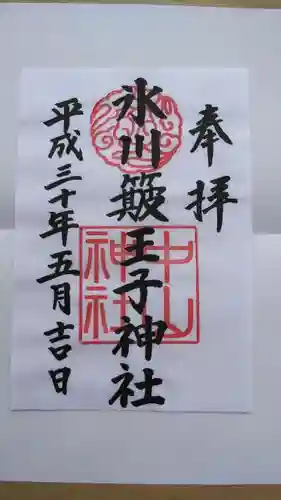 奉拝
氷川簸王子神社
中山
神社
平成三十年五月吉日